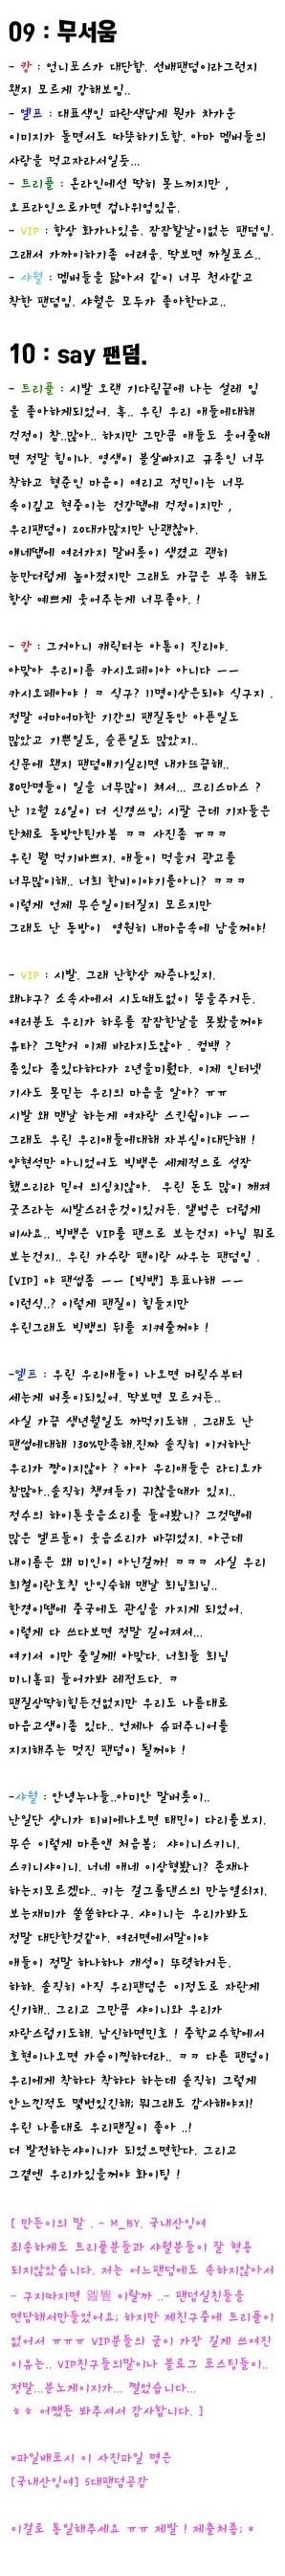 09 : 무서움
- 캉 : 언니포스가 대단함. 선배팬덤이라그런지
왠지 모르게 강해보임..
- 엘프 : 대표색인 파란색답게 뭔가 차가운
이미지가 돌면서도 따뜻하기도함. 아마 멤버들의
사랑을 먹고자라서일듯...
- 트리플 : 온라인에선 딱히 못느끼지만 ,
오프라인으로가면 겁나위엄있음.
- VIP : 항상 화가나있음. 잠잠할날이없는 팬덤임.
그래서 가까이하기좀 어려움. 딱보면 까칠포스..
- 샤월 : 멤버들을 닮아서 같이 너무 천사같고
착한 팬덤임. 샤월은 모두가 좋아한다고..
10 : say 팬덤.
- 트리플 : 시발 오랜 기다림끝에 나는 설레 임
을 좋아하게되었어. 흑.. 우린 우리 애들에대해
걱정이 참..많아.. 하지만 그만큼 애들도 웃어줄때
면 정말 힘이나. 영생이 볼살빠지고 규종인 너무
착하고 형준인 마음이 여리고 정민이는 너무
속이깊고 현중이는 건강땜에 걱정이지만 ,
우리팬덤이 20대가많지만 난괜찮아.
얘네땜에 여러가지 말버릇이 생겼고 괜히
눈만더럽게 높아졌지만 그래도 가끔은 부족 해도
항상 예쁘게 웃어주는게 너무좋아. !
- 캉 : 그거아니 캐릭터는 아톰이 진리야.
아맞아 우리이름 카시오페이아 아니다 ㅡㅡ
카시오페아야 ! ㅋ 식구? 11명이상은되야 식구지 .
정말 어마어마한 기간의 팬질동안 아픈일도
많았고 기쁜일도, 슬픈일도 많았지..
신문에 왠지 팬덤얘기실리면 내가뜨끔해..
80만명들이 일을 너무많이 쳐서... 크리스마스 ?
난 12월 26일이 더 신경쓰임; 시팔 근데 기자들은
단체로 동방안티가봄 ㅋㅋ 사진좀 ㅠㅋㅋ
우린 뭘 먹기바쁘지. 애들이 먹을거 광고를
너무많이해.. 너희 한비이야기를아니? ㅋㅋㅋ
이렇게 언제 무슨일이터질지 모르지만
그래도 난 동방이  영원히 내마음속에 남을꺼야!
- VIP : 시발. 그래 난항상 짜증나있지.
왜냐구? 소속사에서 시도때도없이 똥을주거든.
여러분도 우리가 하루를 잠잠한날을 못봤을꺼야
유타? 그딴거 이제 바라지도않아 . 컴백 ?
좀있다 좀있다하다가 2년을미뤘다. 이제 인터넷
기사도 못믿는 우리의 마음을 알아? ㅠㅠ
시발 왜 맨날 하는게 여자랑 스킨쉽이냐 ㅡㅡ
그래도 우린 우리애들에대해 자부심이대단해 !
양현석만 아니었어도 빅뱅은 세계적으로 성장
했으리라 믿어 의심치않아.  우린 돈도 많이 깨져
굿즈라는 씨발스러운것이있거든. 앨범은 더럽게
비싸요.. 빅뱅은 VIP를 팬으로 보는건지 아님 뭐로
보는건지.. 우린 가수랑 팬이랑 싸우는 팬덤임 .
[VIP] 야 팬썹좀 ㅡㅡ [빅뱅] 투표나해 ㅡㅡ
이런식..? 이렇게 팬질이 힘들지만
우린그래도 빅뱅의 뒤를 지켜줄꺼야 !
-엘프 : 우린 우리애들이 나오면 머릿수부터
세는게 버릇이되있어. 딱보면 모르거든..
사실 가끔 생년월일도 까먹기도해 . 그래도 난
팬썹에대해 130%만족해.진짜 솔직히 이거하난
우리가 짱이지않아 ? 아아 우리애들은 라디오가
참많아..솔직히 챙겨듣기 귀찮을때가 있지..
정수의 하이톤웃음소리를 들어봤니? 그것땜에
많은 엘프들이 웃음소리가 바뀌었지. 아근데
내이름은 왜 미인이 아닌걸까! ㅋㅋㅋ 사실 우리
희철이란호칭 안익숙해 맨날 희님희님..
한경이땜에 중국에도 관심을 가지게 되었어.
이렇게 다 쓰다보면 정말 길어져서...
여기서 이만 줄일께! 아맞다. 너희들 희님
미니홈피 들어가봐 레전드다. ㅋ
팬질상딱히힘든건없지만 우리도 나름대로
마음고생이좀 있다.. 언제나 슈퍼주니어를
지지해주는 멋진 팬덤이 될꺼야 !
-샤월 : 안녕누나들..아미안 말버릇이..
난일단 샹니가 티비에나오면 태민이 다리를보지.
무슨 이렇게 마른앤 처음봄;  샤이니스키니.
스키니샤이니. 너네 얘네 이상형봤니? 존재나
하는지모르겠다.. 키는 걸그룹댄스의 만능열쇠지.
보는재미가 쏠쏠하다구. 샤이니는 우리가봐도
정말 대단한것같아. 여러면에서말이야
애들이 정말 하나하나 개성이 뚜렷하거든.
하하. 솔직히 아직 우리팬덤은 이정도로 자란게
신기해.. 그리고 그만큼 샤이니와 우리가
자랑스럽기도해. 남신하면민호 ! 중학교수학에서
호현이나오면 가슴이찡하더라.. ㅋㅋ 다른 팬덤이
우리에게 착하다 착하다 하는데 솔직히 그렇게
안느낀적도 몇번있긴해; 뭐그래도 감사해야지!
우린 나름대로 우리팬질이 좋아 ..!
더 발전하는샤이니가 되었으면한다. 그리고
그곁엔 우리가있을꺼야 화이팅 !
[ 만든이의 말 . - M_BY. 국내산잉여
죄송하게도 트리플분들과 샤월분들이 잘 형용
되지않았습니다. 저는 어느팬덤에도 속하지않아서
- 구지따지면 이랄까 ..- 팬덤실친들을
면담해서만들었어요; 하지만 제친구중에 트리플이
없어서 ㅠㅠㅠ VIP분들의 글이 가장 길게 쓰여진
이유는.. VIP친구들의말이나 블로그 포스팅들이..
정말...분노게이지가... 쩔었습니다...
ㅎㅎ 어쨌든 봐주셔서 감사합니다. ]
*파일배포시 이 사진파일 명은
[국내산잉여] 5대팬덤공감
이걸로 통일해주세요 ㅠㅠ 제발 ! 제출처좀; *